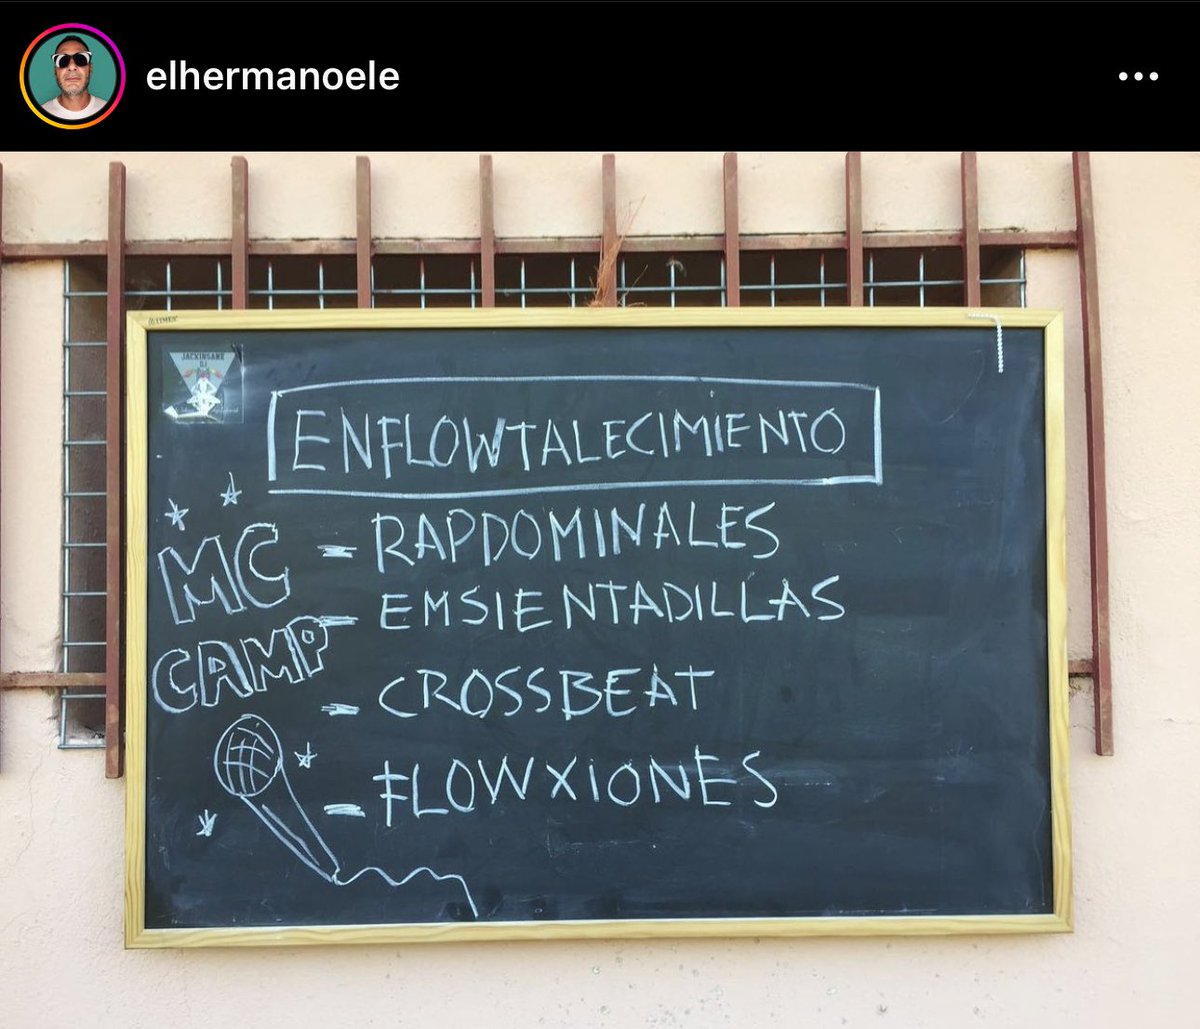 elhermanoele
JACKINSANE
DJ
ENFLOWTALECIMIENTO
MC
CAMP
- RAPDOMINALES
- EMSIENTADILLAS
- CROSSBEAT
- FLOWXIONES